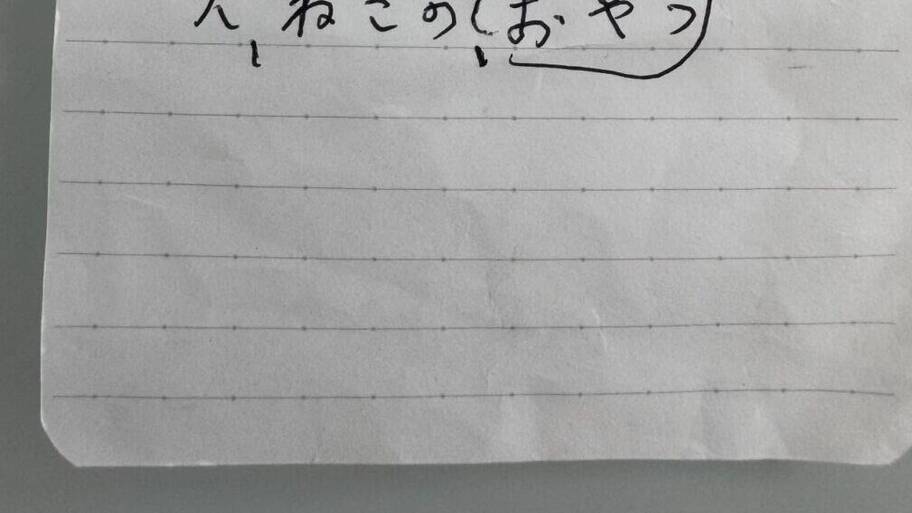 ねこの(おやつ